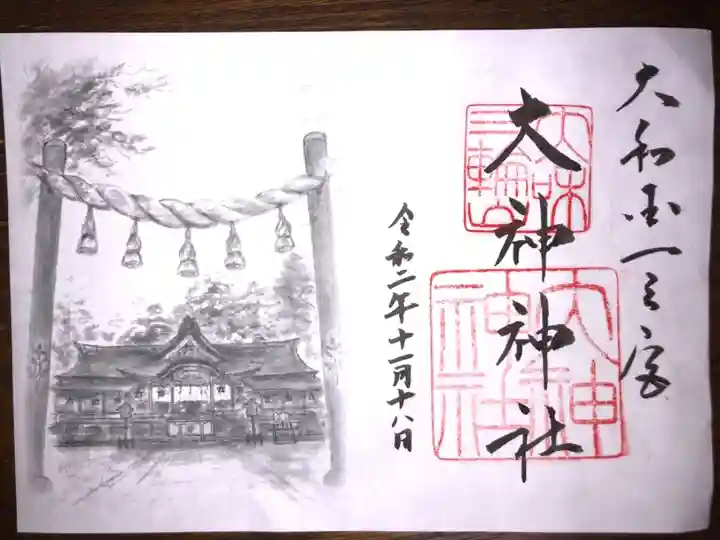 大和国一之宮
大神神社
三輪山
大神神社
令和二年十一月十八日